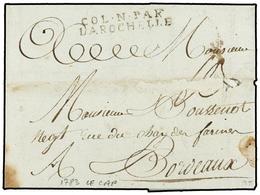 COL. N. PAR
LAROCHELLE
A Monsieur
Monsieur Poussenot
Negt rue du chay des farines
A Bordeaux
1783 LE CAP